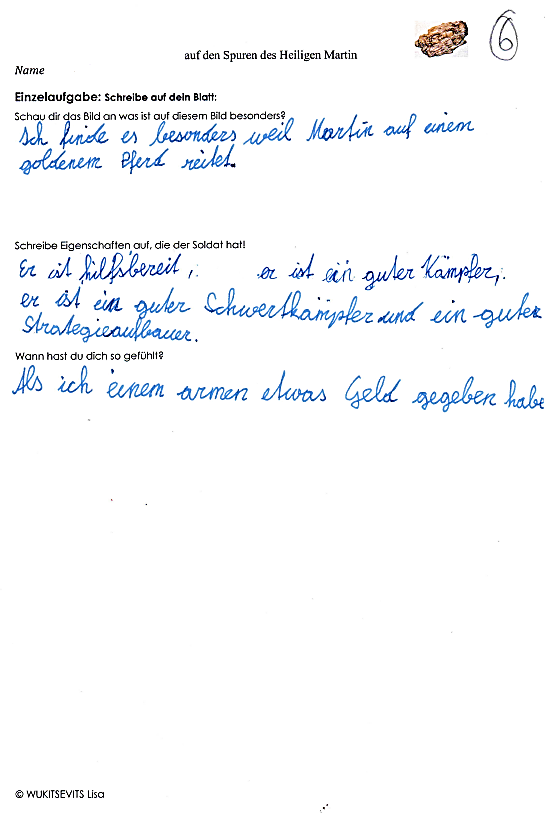 6
auf den Spuren des Heiligen Martin
Name
Einzelaufgabe: Schreibe auf dein Blatt:
Schau dir das Bild an was ist auf diesem Bild besonders?
Ich finde es besonders weil Martin auf einem
goldenem Pferd reitet.
Schreibe Eigenschaften auf, die der Soldat hat!
Er ist hilfsbereit, er ist ein guter Kämpfer,
er ist ein guter Schwertkämpfer und ein guter
Strategieaufbauer.
Wann hast du dich so gefühlt?
Als ich einem armen etwas Geld gegeben habe
© WUKITSEVITS Lisa